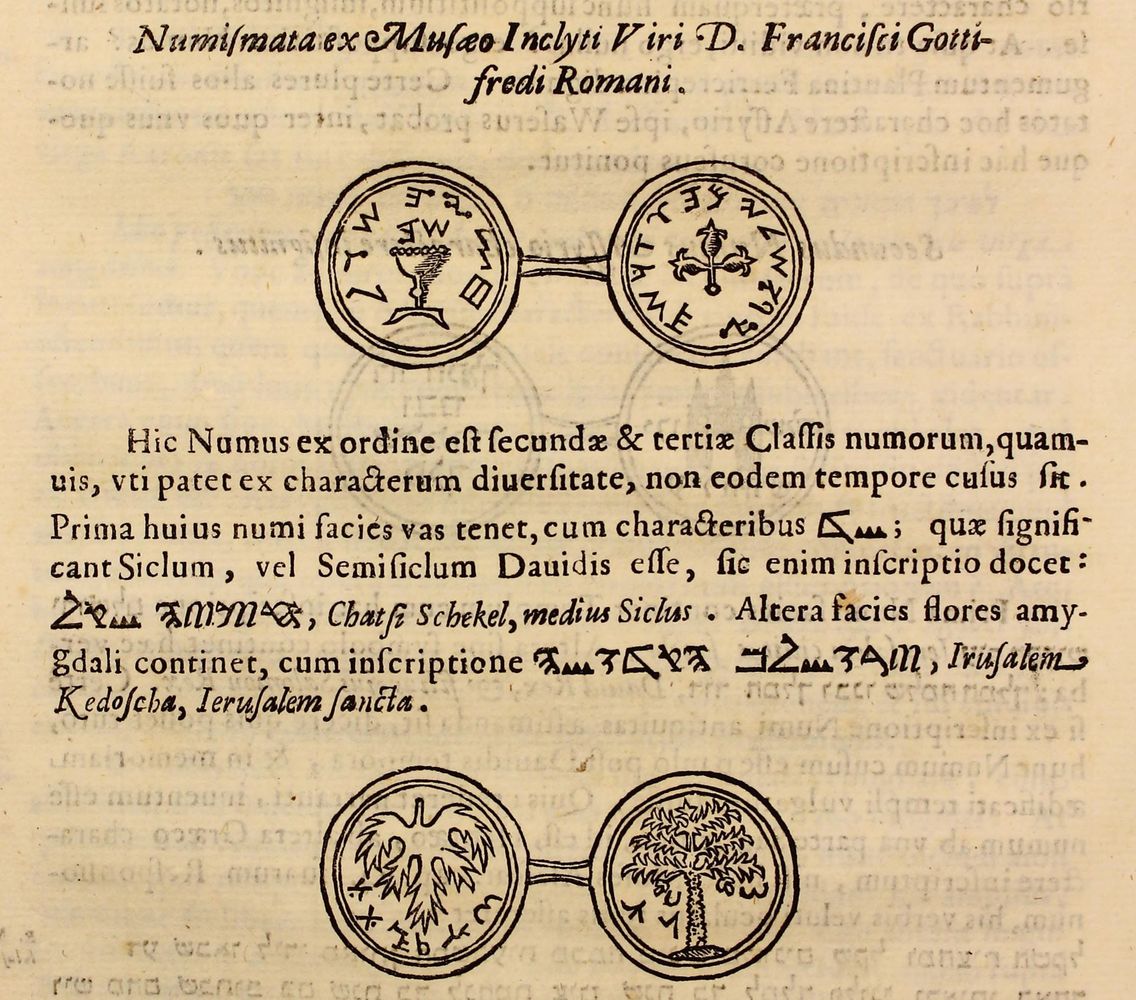 Numiſmata ex Muſæo Inclyti Viri D. Franciſci Gotti-
fredi Romani.
Hic Numus ex ordine eſt ſecundæ & tertiæ Claſſis numorum, quam-
uis, vti patet ex characterum diuerſitate, non eodem tempore cuſus ſit.
Prima huius numi facies vas tenet, cum characteribus ; quæ ſignifi-
cant Siclum, vel Semiſiclum Dauidis eſſe, ſic enim inſcriptio docet:
, Chatſi Schekel, medius Siclus. Altera facies flores amy-
gdali continet, cum inſcriptione , Iruſalem
Kedoſcha, Ieruſalem ſancta.